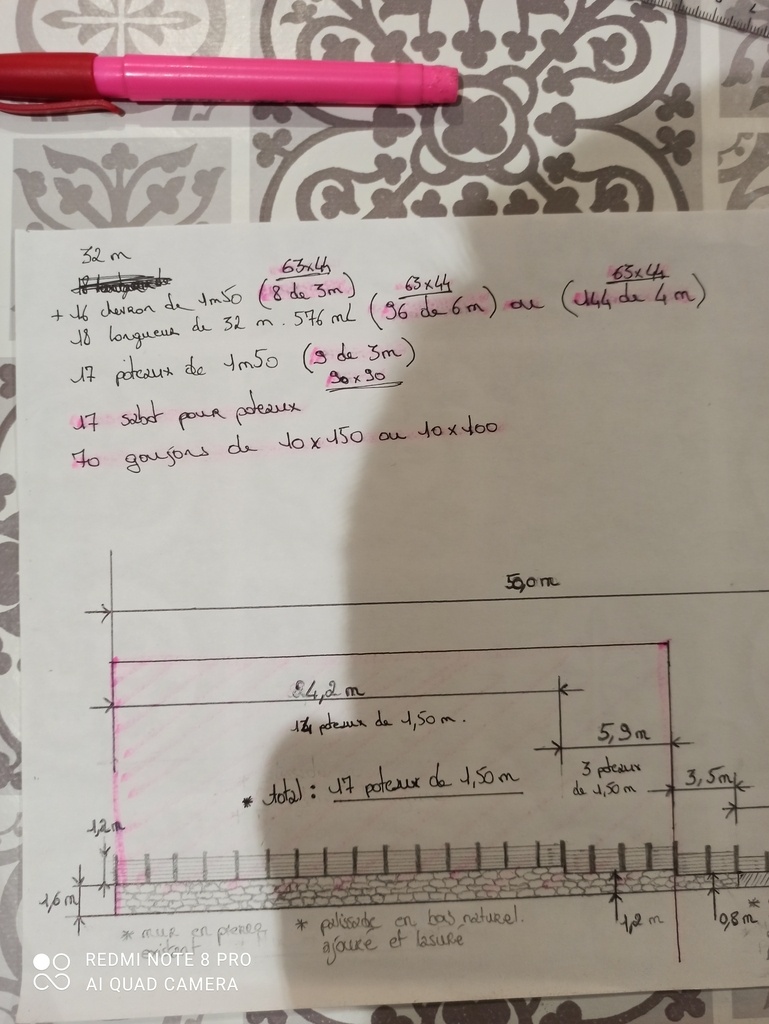 32 m
63x44
63x44
63x44
+ 16 chevron de 1m50 (8 de 3m)
18 longueur de 32 m. 576 mL (96 de 6m) ou (144 de 4m)
17 poteaux de 1m50 (9 de 3m)
90x90
17 sabot pour poteaux
70 goujons de 10x150 ou 10x100
50,0 m
24,2 m
14 poteaux de 1,50 m.
5,9 m
3 poteaux
de 1,50 m
3,5 m
* total : 17 poteaux de 1,50 m
1,2 m
1,6 m
1,2 m
0,8 m
* mur en pierre
existant
* palissade en bois naturel.
ajouré et lasuré
*
REDMI NOTE 8 PRO
AI QUAD CAMERA